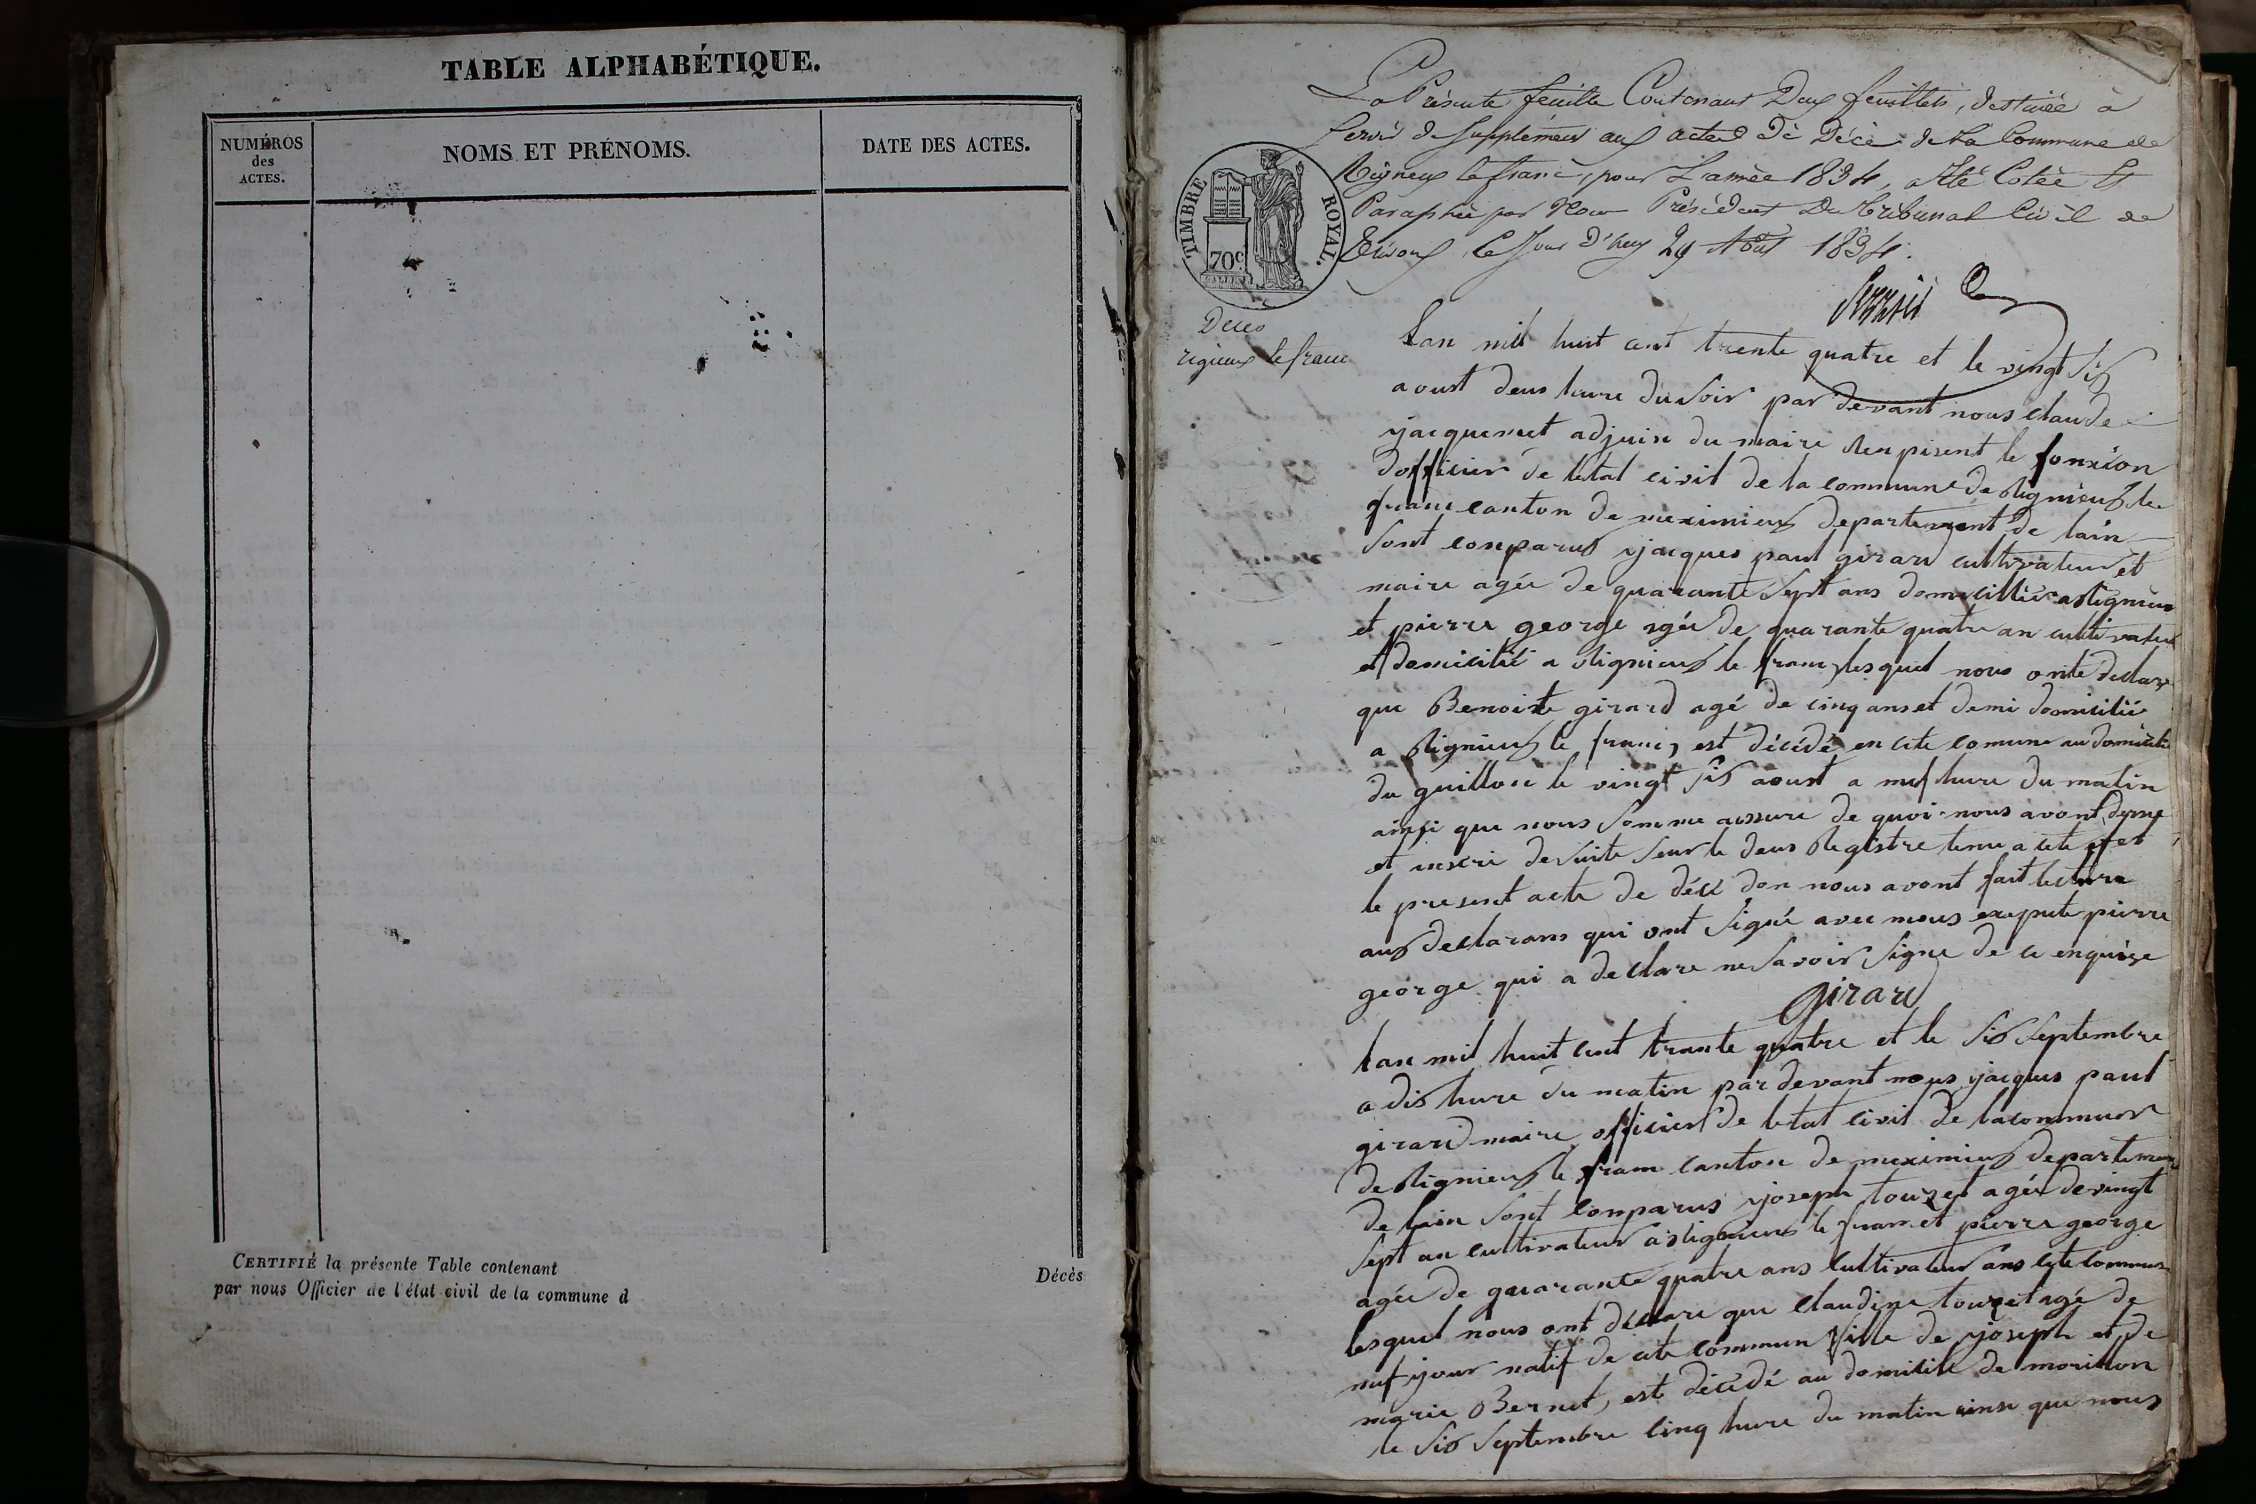 TABLE ALPHABÉTIQUE.
NUMÉROS
des
ACTES.
NOMS ET PRÉNOMS.
DATE DES ACTES.
CERTIFIÉ la présente Table contenant
Décès
par nous Officier de l'état civil de la commune d
La Présente feuille Contenant Deux feuillets, destinée à
servir de Supplément aux actes de Décès de la Commune de
Rigneux le franc, pour L'année 1834, a été Cotée Et
Paraphée par Nous Président Du tribunal Civil de
Trévoux, Ce Jour d'huy 29 Août 1834.
TIMBRE ROYAL.
70c
Deces
rigieux le franc
Lan mil huit cent trente quatre et le vingt six
aoust deus heure du soir par devant nous claude
yjacquemet adjuin du maire Renpisent le fonxion
dofficier de letat civil de la commune de Rignieux le
franc canton de meximieux departement de lain
sont conparus yjacques paul girard cultivateur et
maire agée de quarante sept ans domicilliée a Rignieux
et pierre george agée de quarante quatre an cultivateur
et domicilié a Rignieux le franc lesquel nous onte declare
que Benoite girard agé de cinq ans et demi domicilié
a Rignieux le franc, est décédé en cete comune au domicile
du guillon le vingt six aoust a neuf heure du matin
ainsi que nous somme assure de quoi nous avont dressé
et inscri de suite seur le deus Registre tenu a cete efet
le present acte de décé don nous avont fait lecture
aux declarans qui ont signé avec nous exepute pierre
george qui a declare ne savoir signe de ce enquize
girard
lan mil huit cent trante quatre et le sis septembre
a dis heure du matin par devant nous yjacques paul
girard maire officier de letat civil de la commune
de Rignieux le franc canton de meximieux departement
de lain sont conparus yjoseph touzet agée de vingt
sept an cultivateur a Rignieux le franc et pierre george
agée de quarante quatre ans cultivateur ans cete commune
lesquel nous ont déclare que claudine touzet agé de
neuf yjour natif de cete commun fille de yjoseph et de
marie Bernet, est décédé au domicile de morillon
le sis septembre cinq heure du matin ainsi que nous